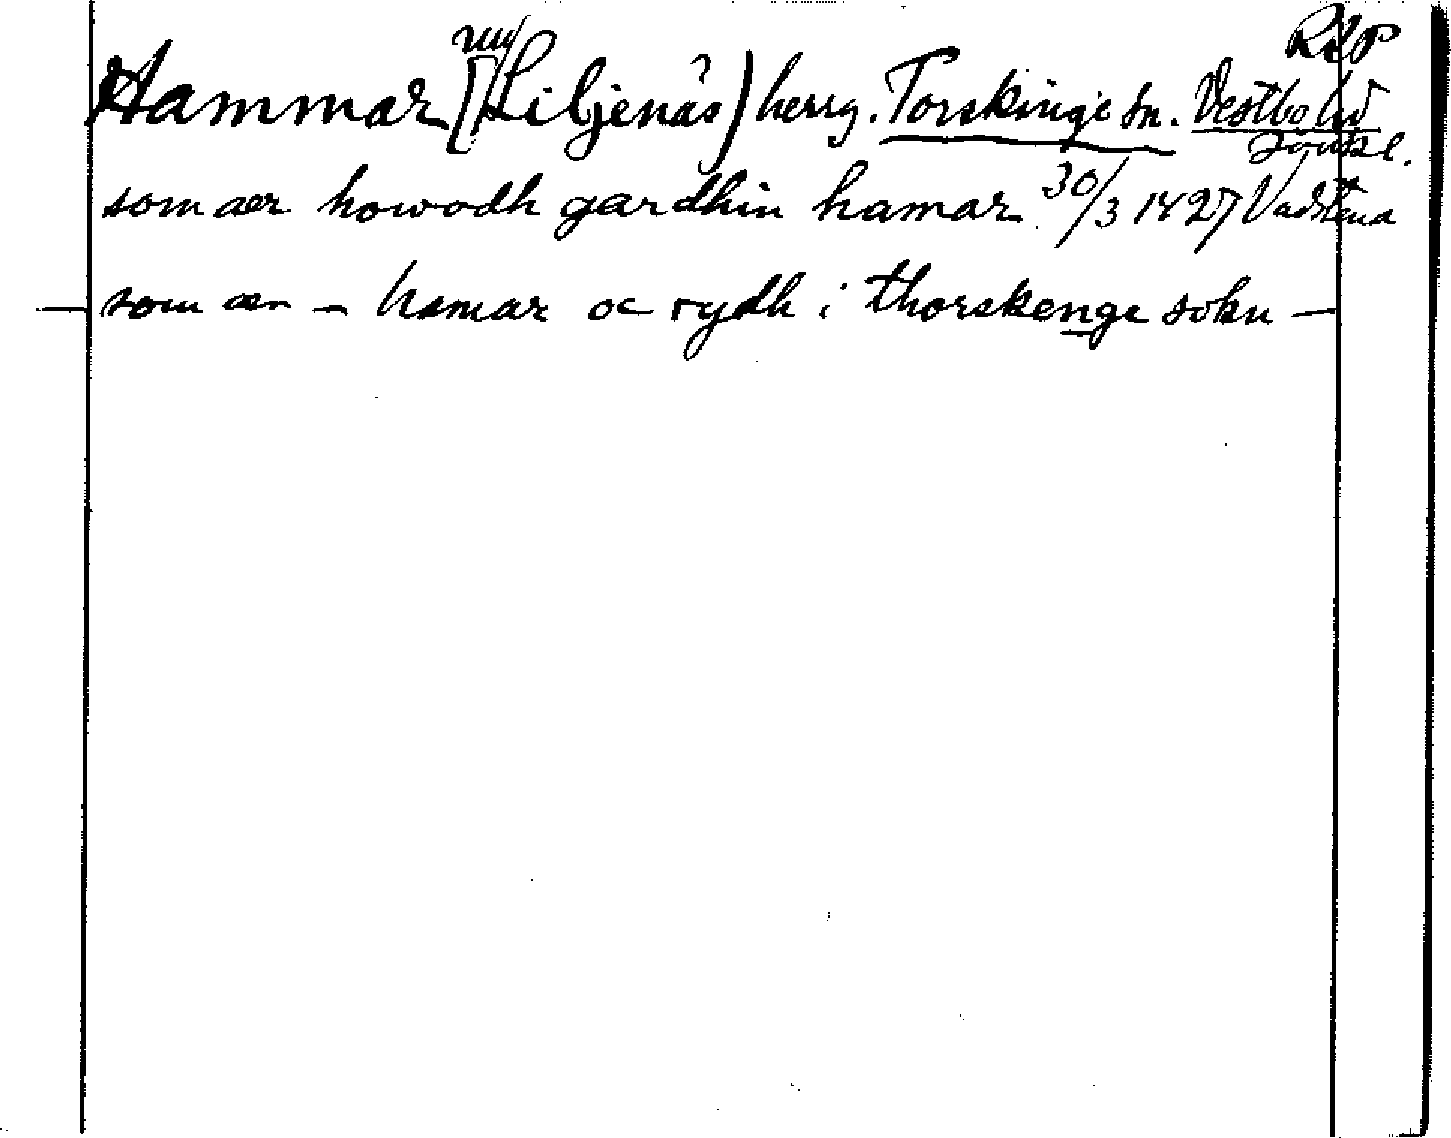 RAP
Hammar (nu Liljenäs?) herrg. Torskinge sn. Vestbo hd
Jönk. l.
som aer howodh gardhin hamar 30/3 1427 Vadstena
— som ær — hamar oc rydh i thorskenge sokn —